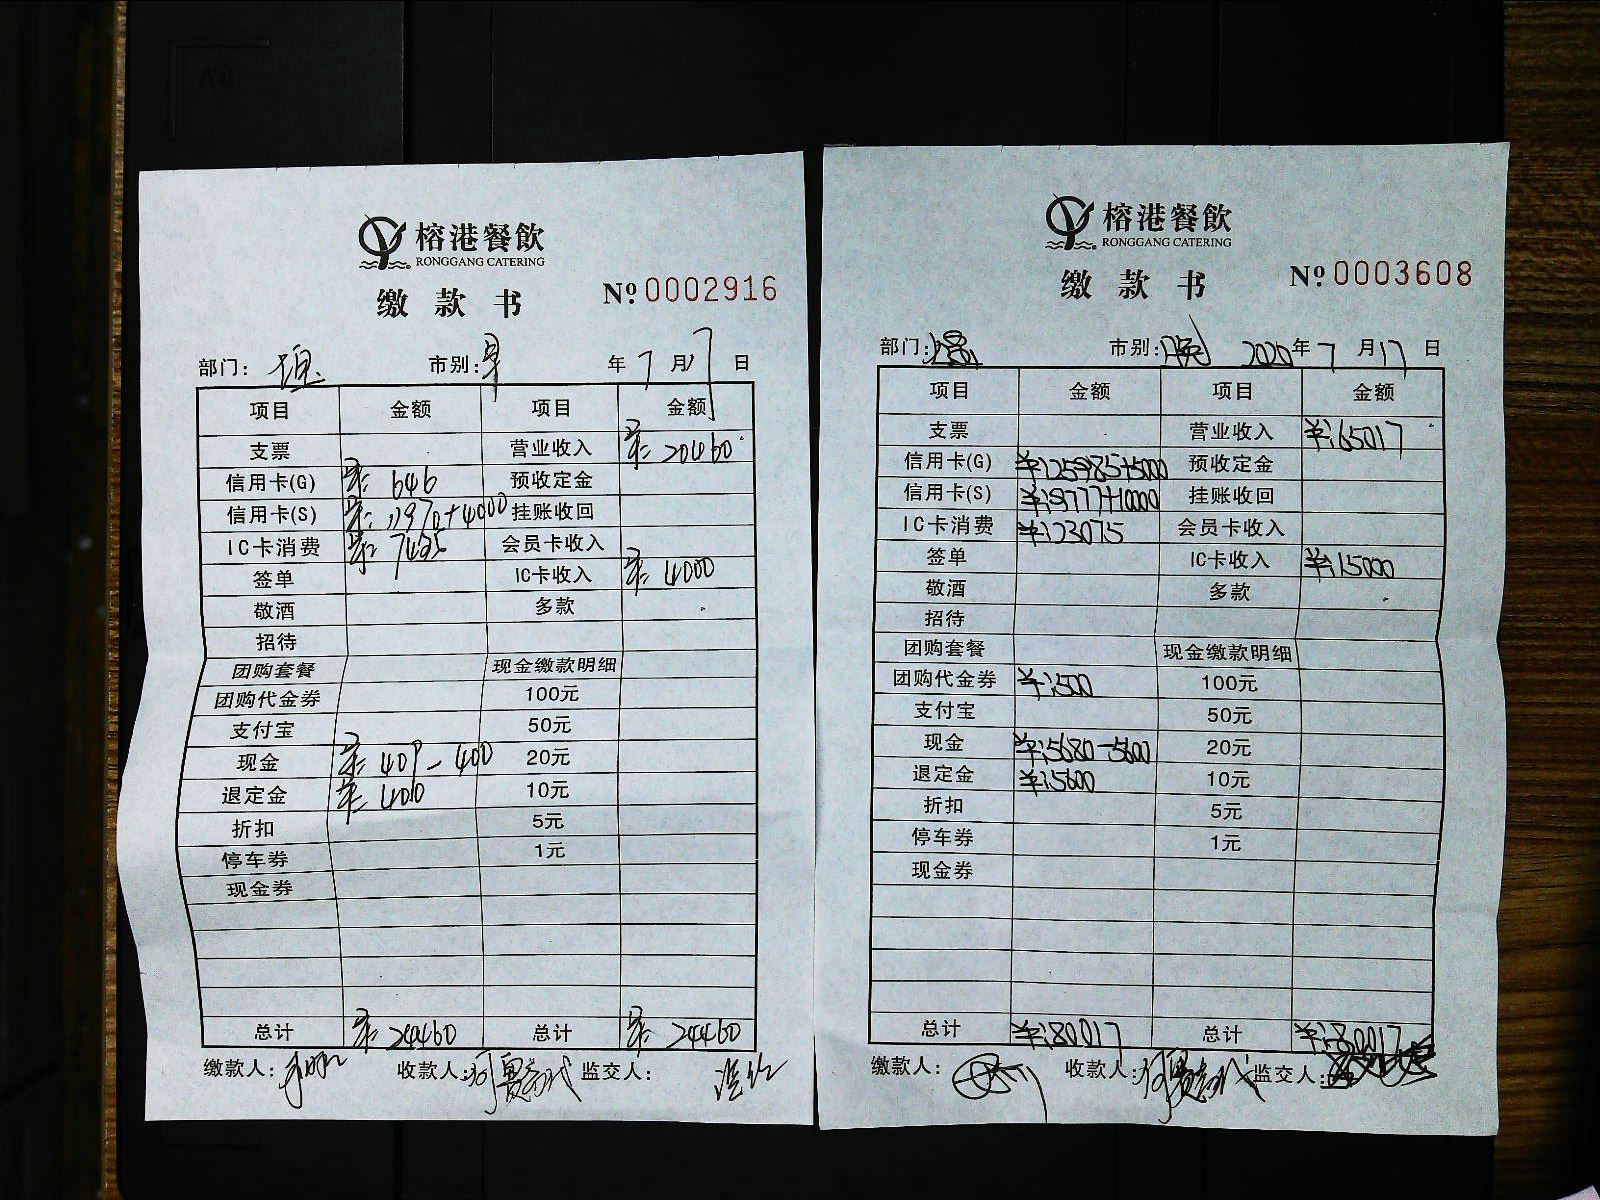 A4
榕港餐飲
RONGGANG CATERING
缴款书
№ 0002916
部门: 市别:早 年 7 月 17 日
项目 金额 项目 金额
支票 营业收入 20460
信用卡(G) 646 预收定金
信用卡(S) 11970+4000 挂账收回
IC卡消费 会员卡收入
签单 IC卡收入 4000
敬酒 多款
招待
团购套餐 现金缴款明细
团购代金券 100元
支付宝 50元
现金 409-400 20元
退定金 400 10元
折扣 5元
停车券 1元
现金券
总计 24460 总计 24460
缴款人: 收款人: 监交人:
榕港餐飲
RONGGANG CATERING
缴款书
№ 0003608
部门: 市别:晚 2020年 7 月 17 日
项目 金额 项目 金额
支票 营业收入 ¥:165017
信用卡(G) ¥125985+5000 预收定金
信用卡(S) ¥:9777+10000 挂账收回
IC卡消费 ¥:23075 会员卡收入
签单 IC卡收入 ¥:15000
敬酒 多款
招待
团购套餐 现金缴款明细
团购代金券 ¥:500 100元
支付宝 50元
现金 ¥:5680-5600 20元
退定金 ¥:5600 10元
折扣 5元
停车券 1元
现金券
总计 ¥:180017 总计 ¥:180017
缴款人: 收款人: 监交人: